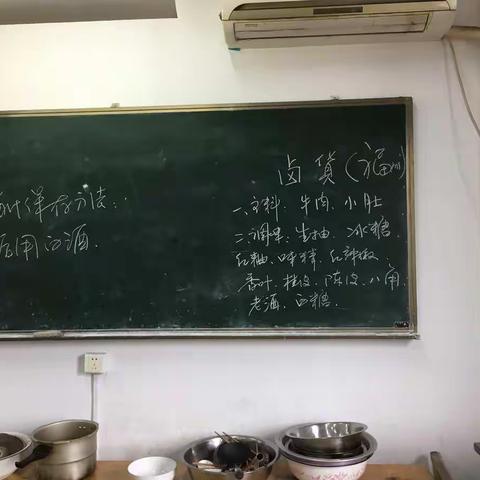 保存方法:
后用白酒.
卤货(福州)
一.主料: 牛肉. 小肚
二.调味: 生抽. 冰糖.
红糟. 味精. 红辣椒.
香叶. 桂皮. 陈皮. 八角.
老酒. 白糖.